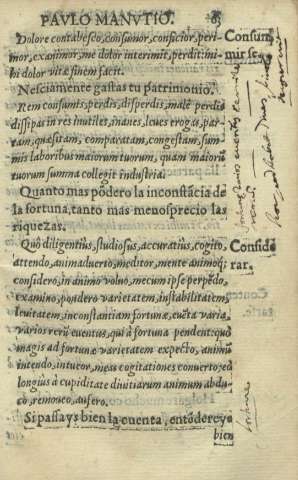 PAVLO MANVTIO. 65
Dolore contabesco, consumor, conficior, peri-
mor, exanimor, me dolor interimit, perdit: mi-
hi dolor vitæ finem facit.
Consum
mir se.
Nesciamente gastas tu patrimonio.
Rem consumis, perdis, disperdis, malè perdis
dissipas in res inutiles, inanes, leues erogas, par-
tam, quæsitam, comparatam, congestam, sum-
mis laboribus maiorum tuorum, quam maiorũ
tuorum summa collegit industria.
Quanto mas põdero la inconstãcia de
la fortuna, tanto mas menosprecio las
riquezas.
Quò diligentius, studiosus, accuratius, cogito,
attendo, animaduerto, meditor, mente animoq́
considero, in animo voluo, mecum ipse perpẽdo,
examino, pondero varietatem, instabilitatem,
leuitatem, inconstantiam fortunæ, euẽta varia,
varios rerũ euentus, qui à fortuna pendent: quò
magis ad fortunæ varietatem expecto, animũ
intendo, intueor, meas cogitationes conuerto; eò
longiùs à cupiditate diuitiarum animum abdu-
co, remoueo, aufero.
Conside
rar.
Si passays bien la cuenta, entõdereys
bien